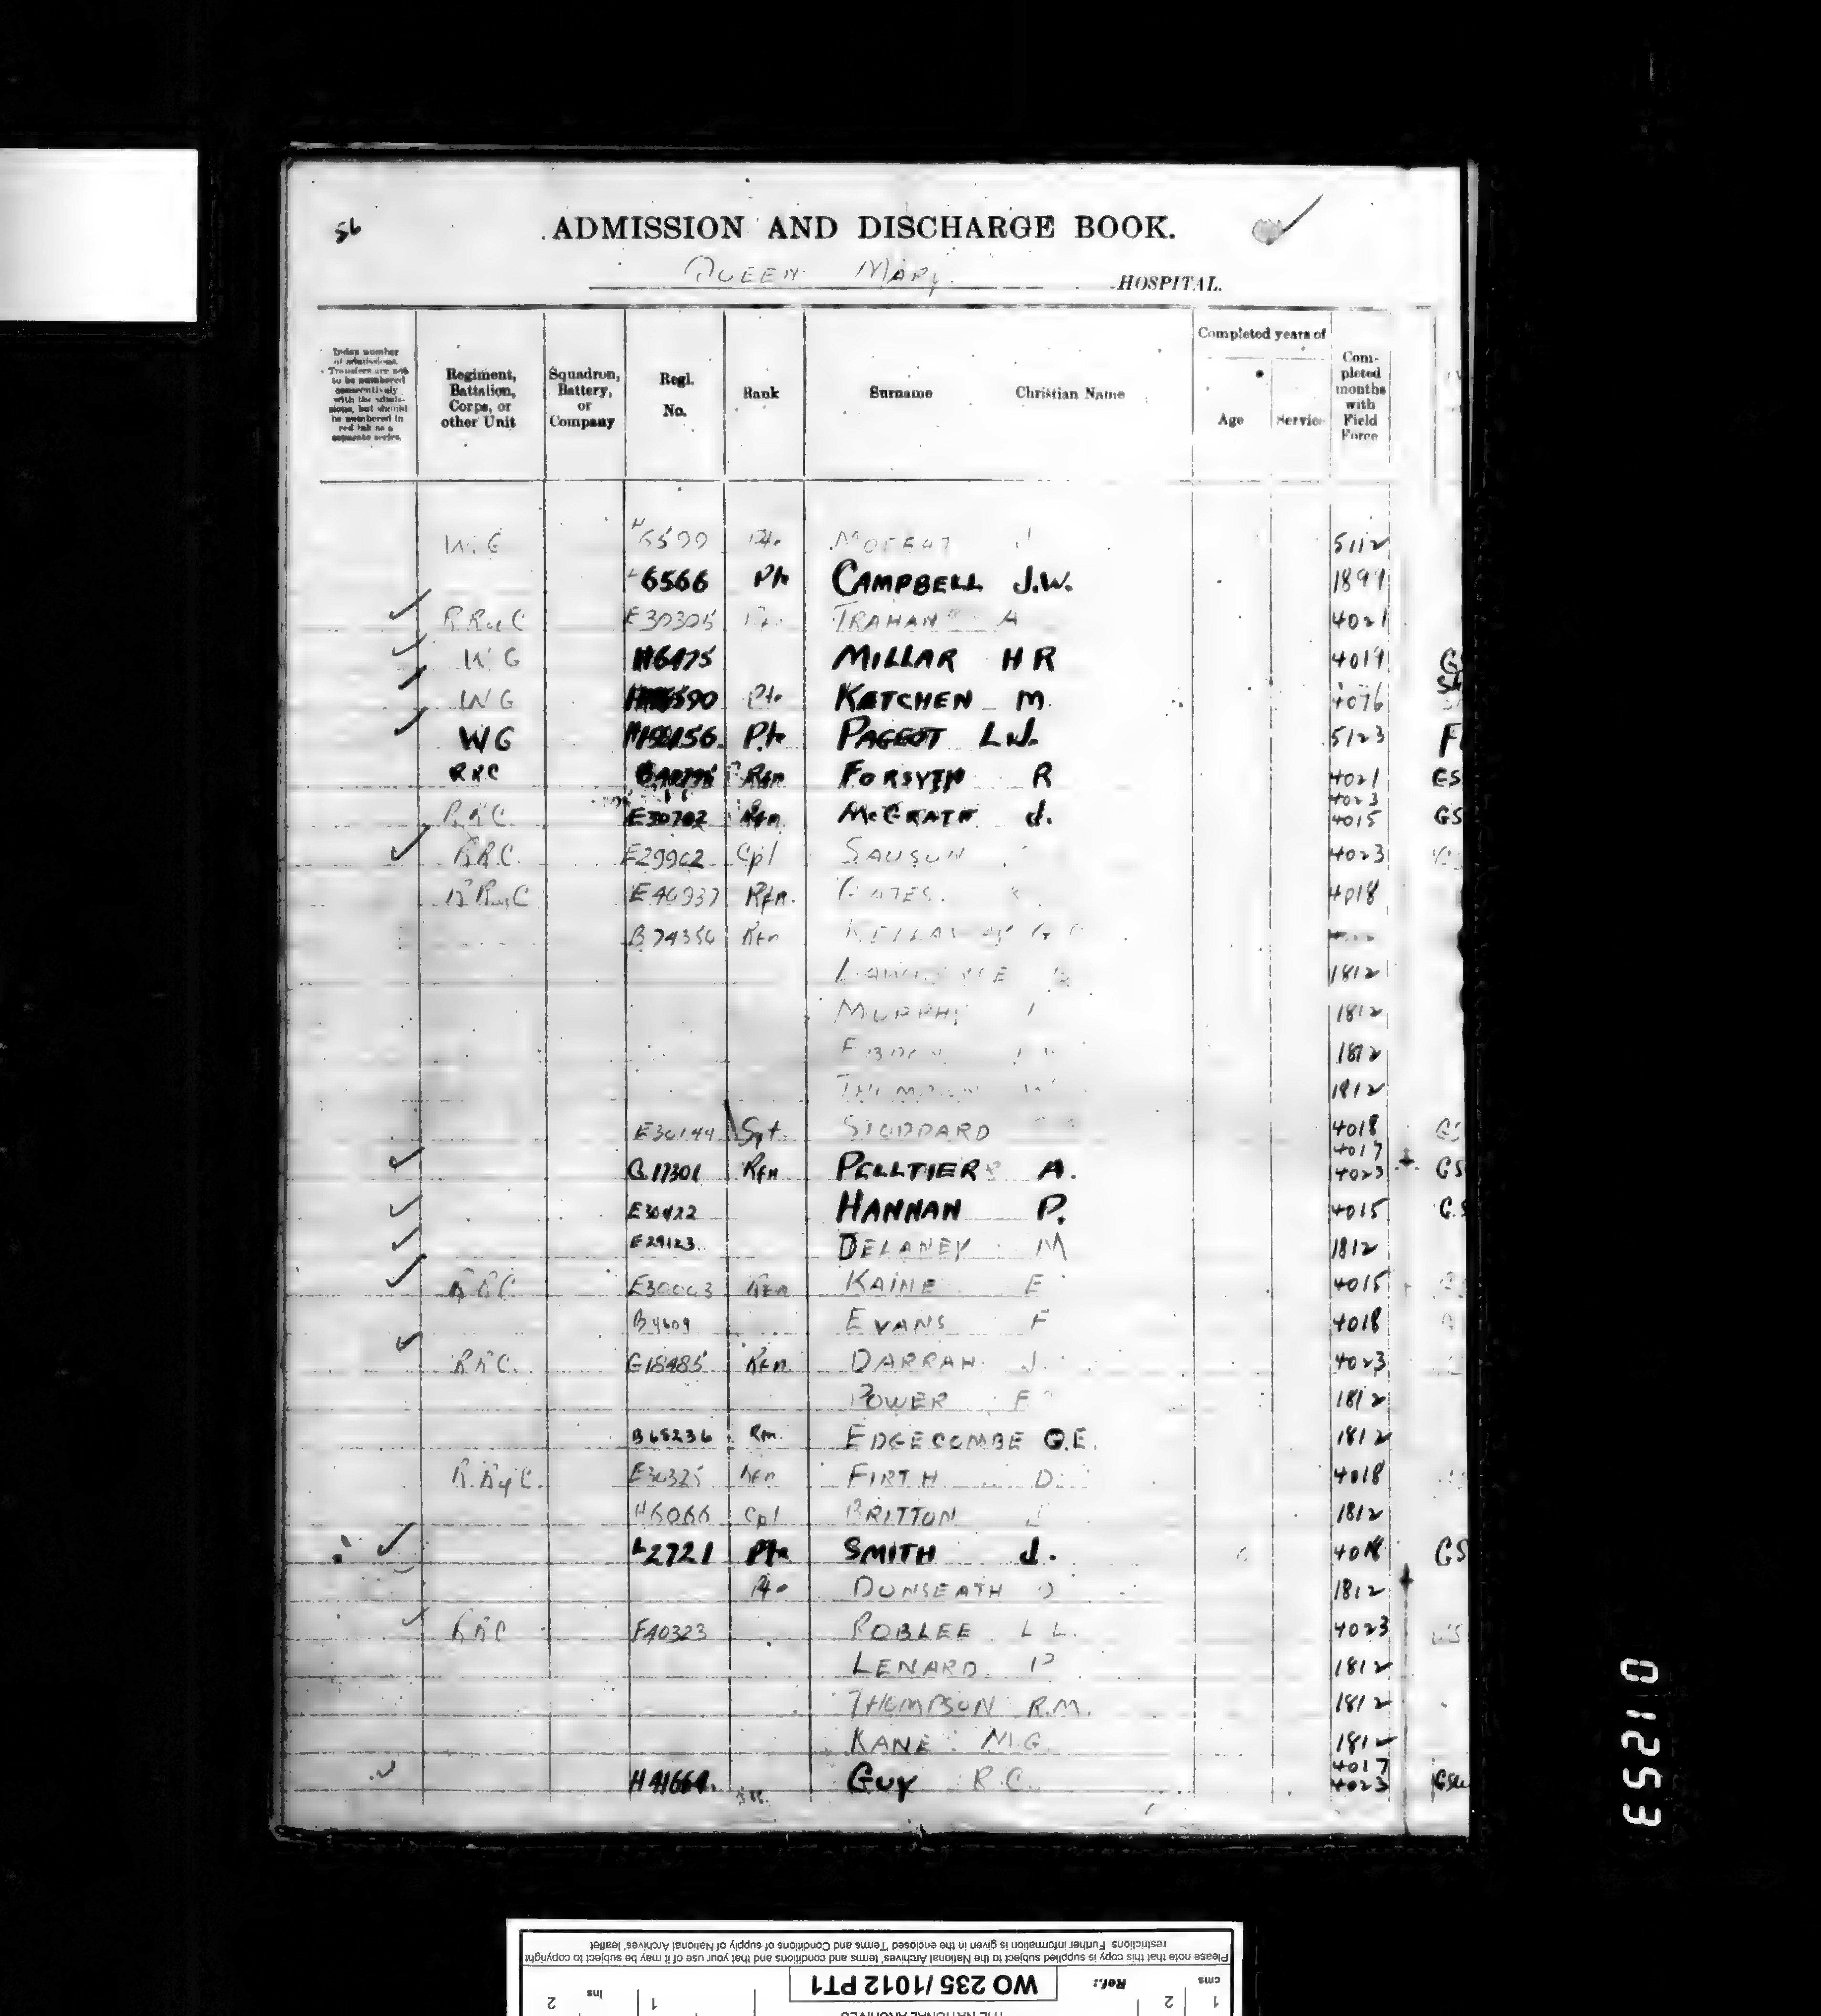 56
ADMISSION AND DISCHARGE BOOK.
QUEEN MARY HOSPITAL.
Index number of admissions. Transfers are not to be numbered consecutively with the admissions, but should be numbered in red ink as a separate series.
Regiment, Battalion, Corps, or other Unit
Squadron, Battery, or Company
Regl. No.
Rank
Surname
Christian Name
Completed years of
Age
Service
Completed months with Field Force
W G Pte J 5112
6566 Pte CAMPBELL J.W. 1899
E30305 TRAHAN A 4021
W G H6175 MILLAR H R 4019 G
W G Pte KETCHEN M 4076
WG Pte PAGEOT L.J. 5123 F
RRC Rfn FORSYTH R 4021 ES
4023
RRC E30702 Rfn McGRATH J. 4015 GS
RRC. E29902 Cpl 4023
E40937 Rfn. 4018
B74356 Rfn
1812
MURPHY 1812
1812
1812
E30144 Sgt. STODDARD 4018
4017
G17301 Rfn PELLTIER A. 4023 GS
E30422 HANNAN P. 4015 G.S
E29123 DELANEY M 1812
RRC E30003 Rfn KAINE E 4015
B4609 EVANS F 4018
RRC. G18485 Rfn. DARRAH J. 4023
POWER F 1812
B68236 Rfn. EDGECOMBE G.E. 1812
E30325 Rfn FIRTH D. 4018
H6066 Cpl BRITTON J 1812
L2721 Pte SMITH J. 4018 GS
Pte DUNSEATH D 1812
RRC F40323 ROBLEE L L. 4023
LENARD P 1812
THOMPSON R.M. 1812
KANE M.G. 1812
4017
H41664. GUY R.C. 4023 GSW
013253
Please note that this copy is supplied subject to the National Archives' terms and conditions and that your use of it may be subject to copyright
restrictions Further information is given in the enclosed 'Terms and Conditions of supply of National Archives' leaflet
cms 1 2 Ref.: WO 235/1012 PT1 1 ins 2
THE NATIONAL ARCHIVES